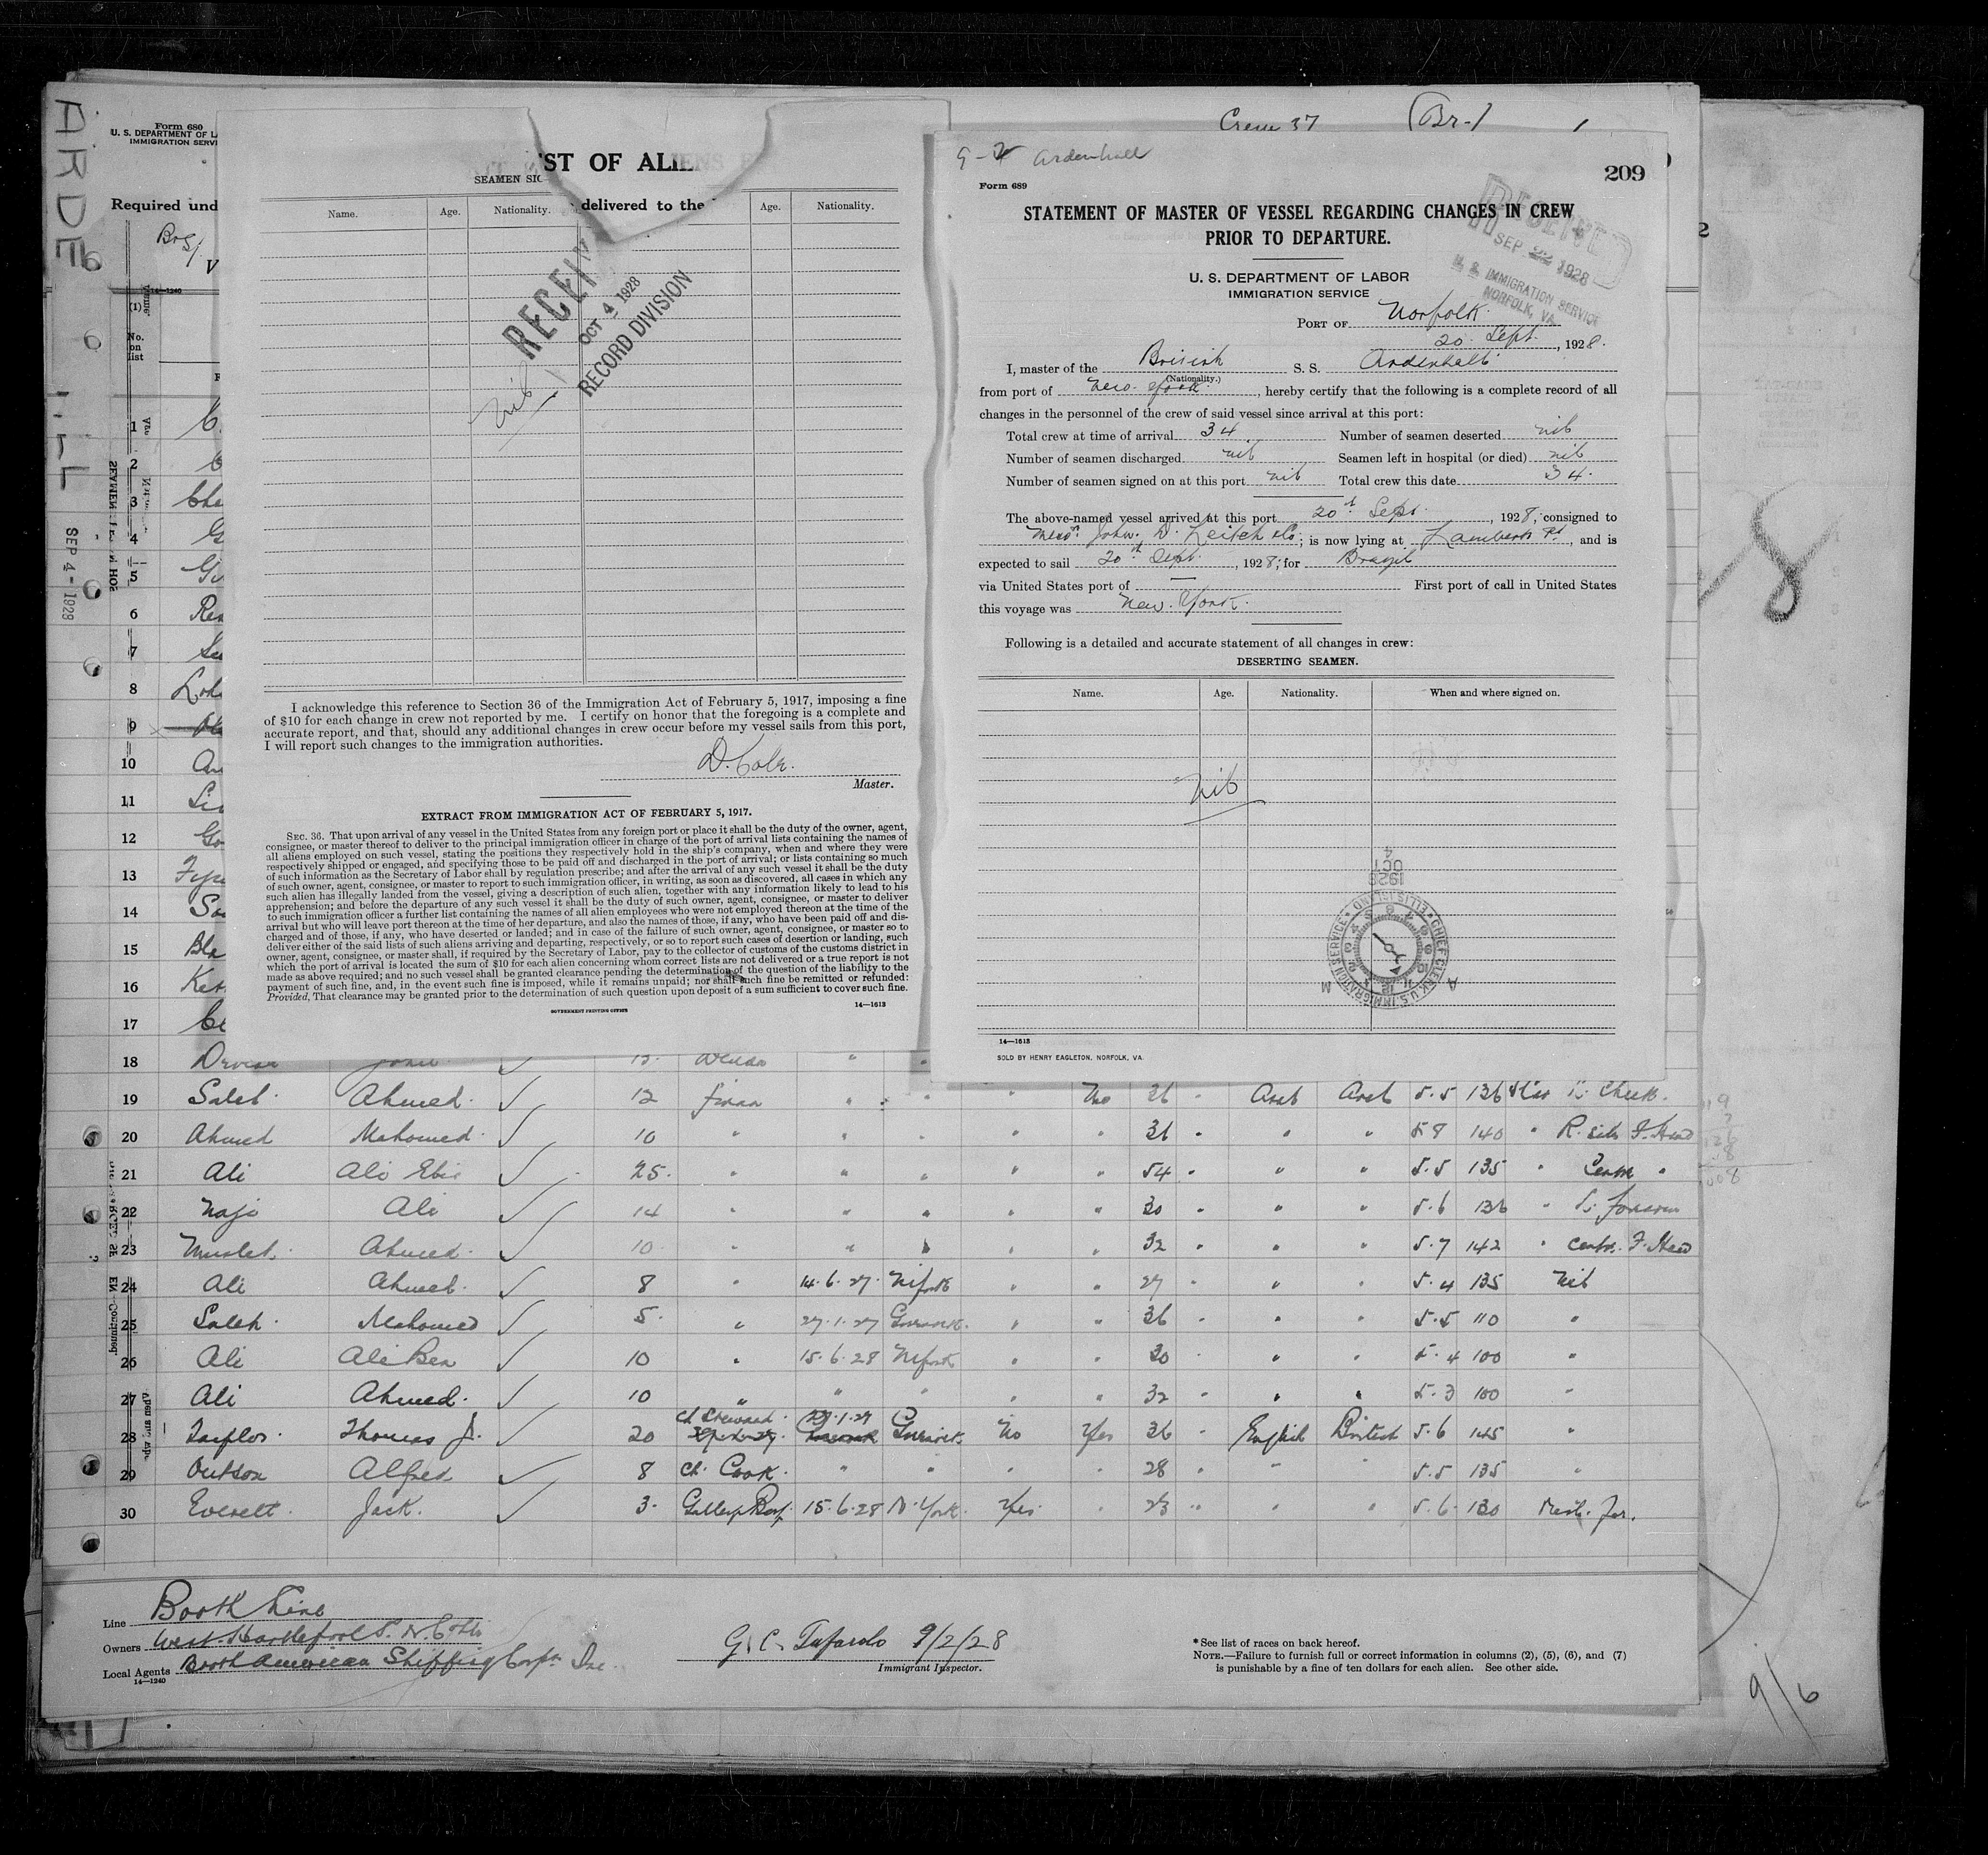 ARDE
LL
SEP 4 - 1928
Form 680
U. S. DEPARTMENT OF L
IMMIGRATION SERVI
Required und
14—1240
(1)
No.
on
list
1
2
3
4
5
6
7
8
9
10
11
12
13
14
15
16
17
ST OF ALIENS
SEAMEN SIG
delivered to the
Name. Age. Nationality. Age. Nationality.
RECEIV
OCT 4 1928
RECORD DIVISION
nil
I acknowledge this reference to Section 36 of the Immigration Act of February 5, 1917, imposing a fine
of $10 for each change in crew not reported by me. I certify on honor that the foregoing is a complete and
accurate report, and that, should any additional changes in crew occur before my vessel sails from this port,
I will report such changes to the immigration authorities.
D. Cole.
Master.
EXTRACT FROM IMMIGRATION ACT OF FEBRUARY 5, 1917.
SEC. 36. That upon arrival of any vessel in the United States from any foreign port or place it shall be the duty of the owner, agent,
consignee, or master thereof to deliver to the principal immigration officer in charge of the port of arrival lists containing the names of
all aliens employed on such vessel, stating the positions they respectively hold in the ship's company, when and where they were
respectively shipped or engaged, and specifying those to be paid off and discharged in the port of arrival; or lists containing so much
of such information as the Secretary of Labor shall by regulation prescribe; and after the arrival of any such vessel it shall be the duty
of such owner, agent, consignee, or master to report to such immigration officer, in writing, as soon as discovered, all cases in which any
such alien has illegally landed from the vessel, giving a description of such alien, together with any information likely to lead to his
apprehension; and before the departure of any such vessel it shall be the duty of such owner, agent, consignee, or master to deliver
to such immigration officer a further list containing the names of all alien employees who were not employed thereon at the time of the
arrival but who will leave port thereon at the time of her departure, and also the names of those, if any, who have been paid off and dis-
charged and of those, if any, who have deserted or landed; and in case of the failure of such owner, agent, consignee, or master so to
deliver either of the said lists of such aliens arriving and departing, respectively, or so to report such cases of desertion or landing, such
owner, agent, consignee, or master shall, if required by the Secretary of Labor, pay to the collector of customs of the customs district in
which the port of arrival is located the sum of $10 for each alien concerning whom correct lists are not delivered or a true report is not
made as above required; and no such vessel shall be granted clearance pending the determination of the question of the liability to the
payment of such fine, and, in the event such fine is imposed, while it remains unpaid; nor shall such fine be remitted or refunded:
Provided, That clearance may be granted prior to the determination of such question upon deposit of a sum sufficient to cover such fine.
14—1613
GOVERNMENT PRINTING OFFICE
Crew 37 (Br-)
Ardenhall
209
Form 689
STATEMENT OF MASTER OF VESSEL REGARDING CHANGES IN CREW
PRIOR TO DEPARTURE.
RECEIVED
SEP 22 1928
U. S. IMMIGRATION SERVICE
NORFOLK, VA.
U. S. DEPARTMENT OF LABOR
IMMIGRATION SERVICE
PORT OF Norfolk.
20 Sept. , 1928.
I, master of the British S. S. Ardenhall
(Nationality.)
from port of New York , hereby certify that the following is a complete record of all
changes in the personnel of the crew of said vessel since arrival at this port:
Total crew at time of arrival 34 Number of seamen deserted nil
Number of seamen discharged nil Seamen left in hospital (or died) nil
Number of seamen signed on at this port nil Total crew this date 34.
The above-named vessel arrived at this port 20th Sept. , 1928, consigned to
Messrs John. D. Leitch Co; is now lying at Lamberts Pt , and is
expected to sail 20th Sept. , 1928; for Brazil
via United States port of — First port of call in United States
this voyage was New York.
Following is a detailed and accurate statement of all changes in crew:
DESERTING SEAMEN.
Name. Age. Nationality. When and where signed on.
nil
OCT 4
1928
CHIEF CLERK, U.S. IMMIGRATION SERVICE • ELLIS ISLAND
A M
14—1613
SOLD BY HENRY EAGLETON, NORFOLK, VA.
18 John
19 Saleh Ahmed 12 Fireman " " " No 36 " Arab Arab 5.5 136 Cheek.
20 Ahmed Mahomed 10 " " " " " 36 " " " 5 8 140 " R. side F. Head
21 Ali Ali 25 " " " " " 54 " " " 5.5 135 " Centre "
22 Naji Ali 14 " " " " " 30 " " " 5.6 136 " Forearm
23 Muslet Ahmed 10 " " " " " 32 " " " 5.7 142 " Centre F. Head
24 Ali Ahmed 8 " 14.6.27 " " 27 " " " 5.4 135 Nil
25 Saleh Mahomed 5 " 27.1.27 " " 36 " " " 5.5 110 "
26 Ali Ali Ben 10 " 15.6.28 " " 30 " " " 5.4 100 "
27 Ali Ahmed 10 " " " " " 32 " " " 5.3 100 "
28 Taylor Thomas J. 20 Ch Steward 27.1.27 No Yes 36 " English British 5.6 145 "
29 Outson Alfred 8 Ch. Cook " " " " 28 " " " 5.5 135 "
30 Everett Jack. 3 Galley Boy 15.6.28 N. York Yes " 23 " " " 5.6 130
Line Booth Line
Owners West Hartlepool S. N. Co Ltd
Local Agents Booth American Shipping Corpn Inc.
14—1240
G. C. Tufarolo 9/2/28
Immigrant Inspector.
*See list of races on back hereof.
NOTE.—Failure to furnish full or correct information in columns (2), (5), (6), and (7)
is punishable by a fine of ten dollars for each alien. See other side.
8
9/6